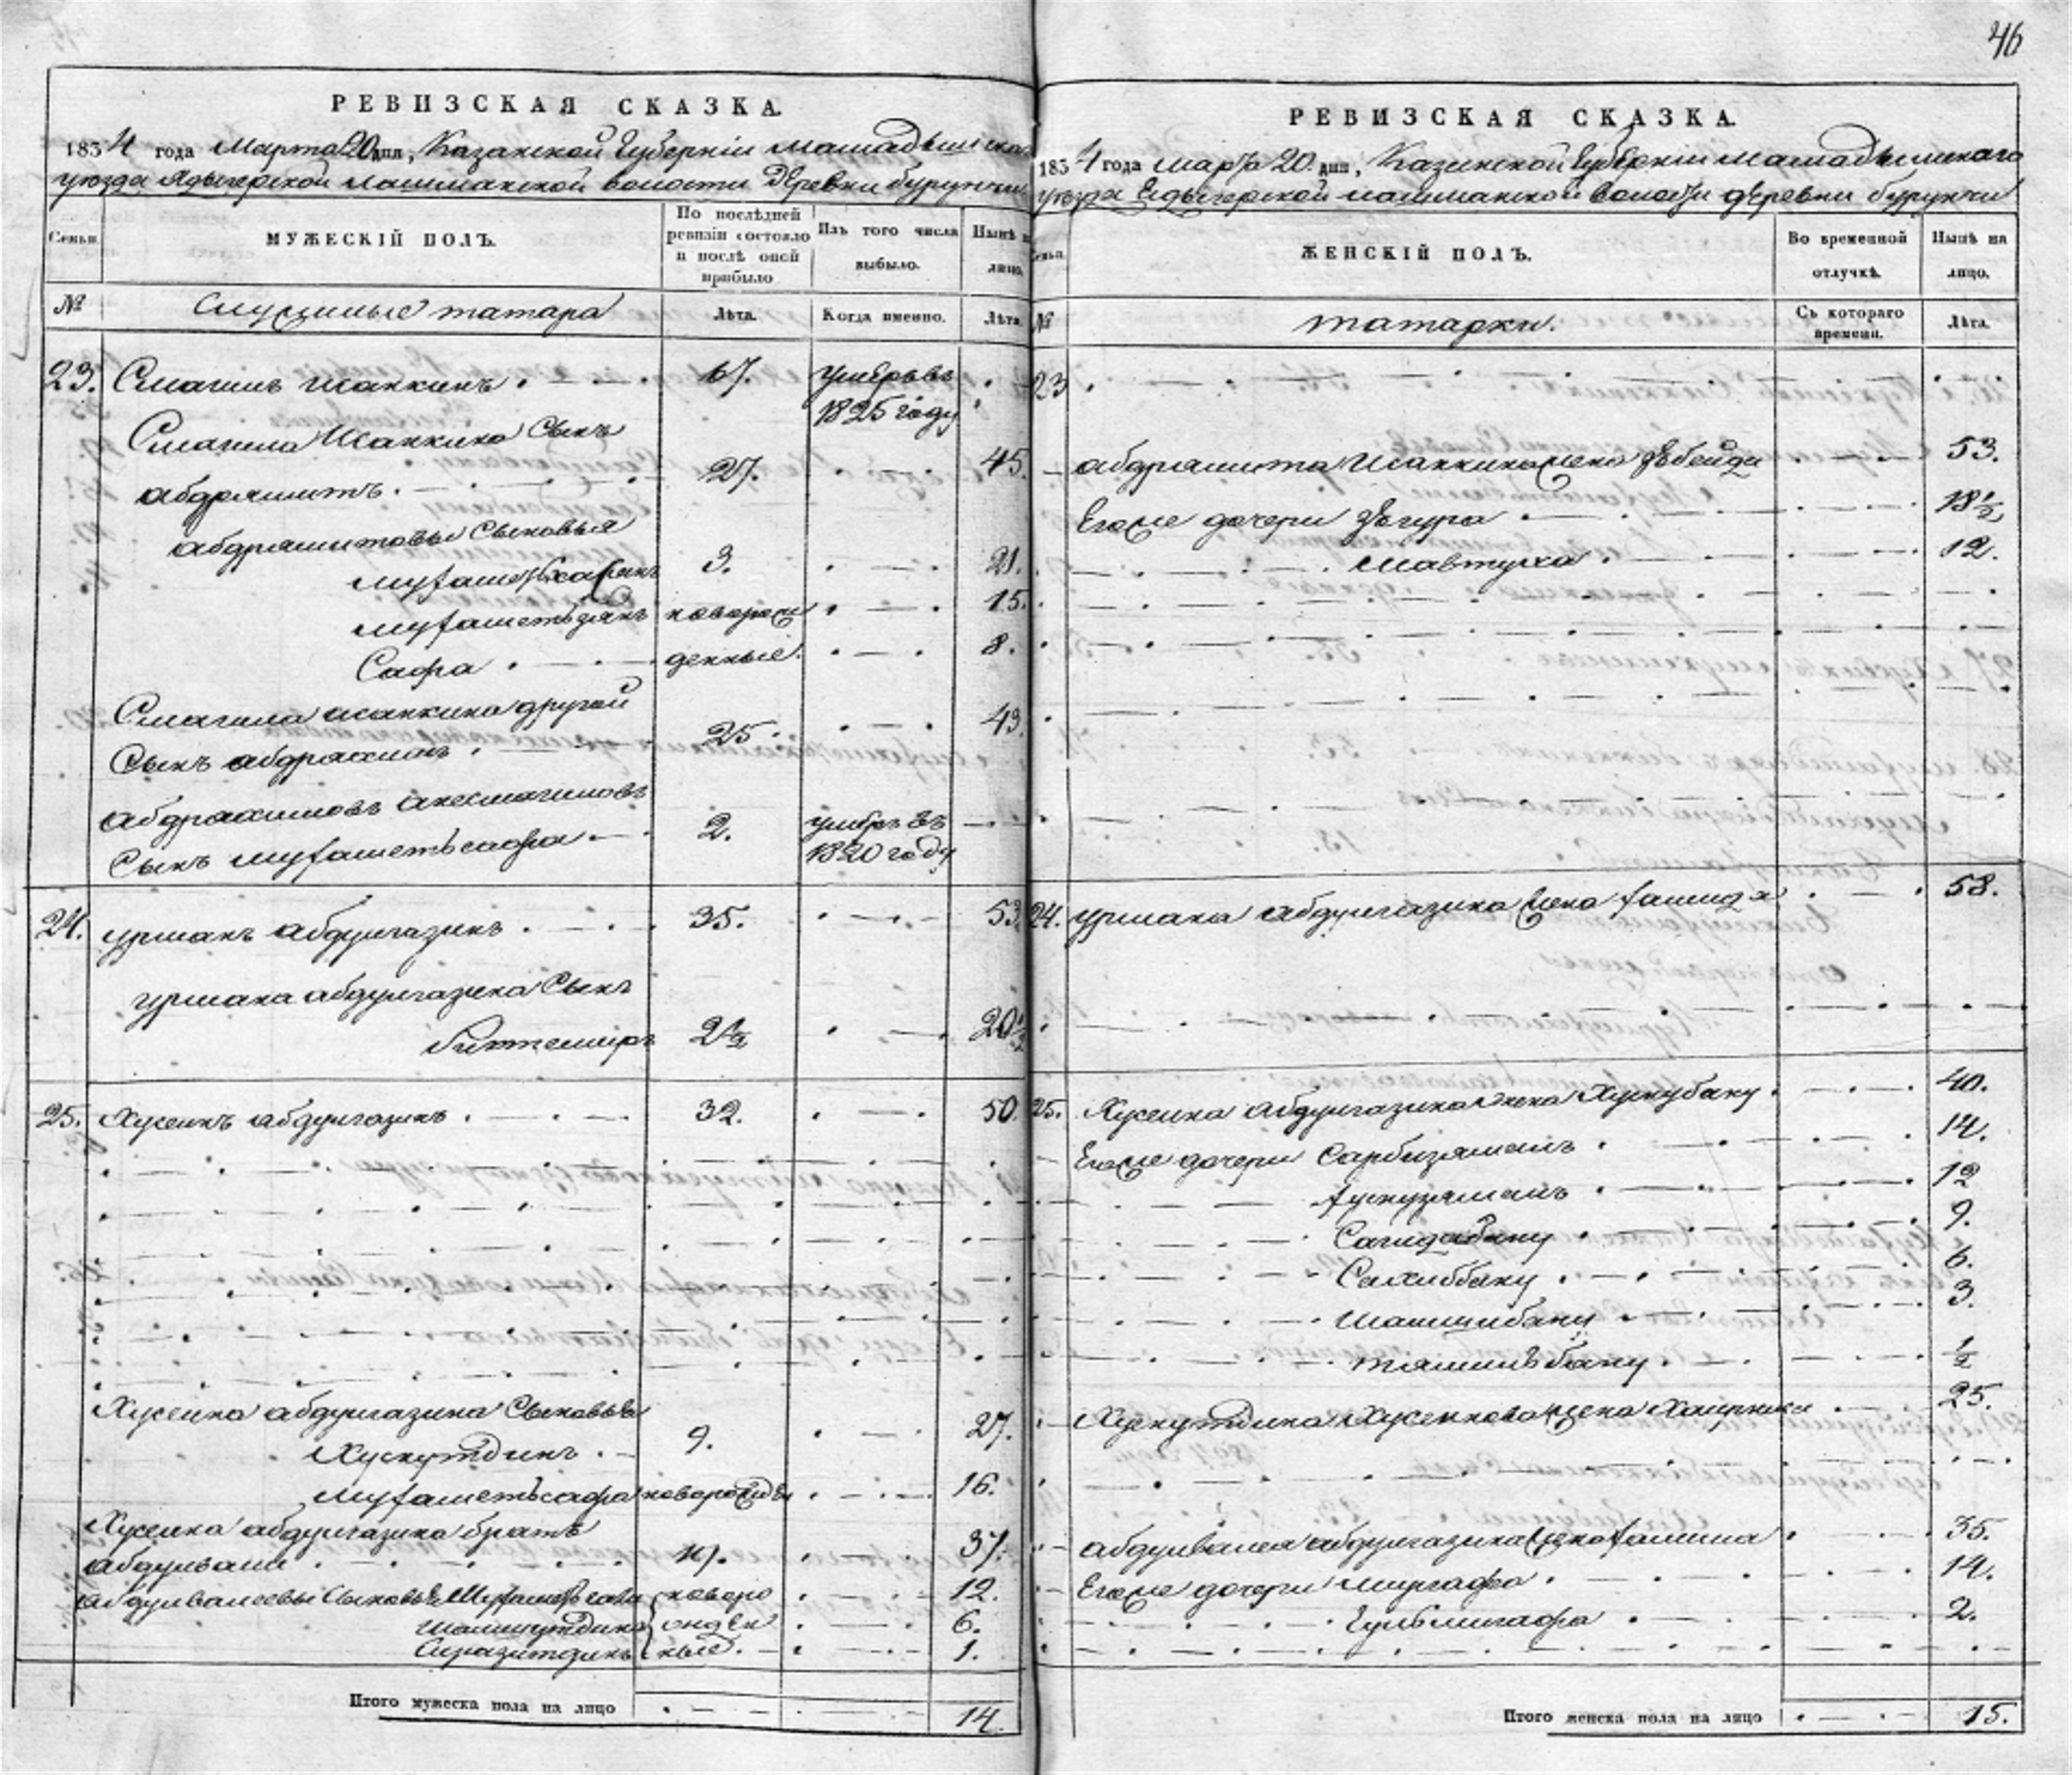 46
РЕВИЗСКАЯ СКАЗКА.
1834 года Марта 20 дня, Казанской Губернiи мамадышска
уезда Ядыгерской лашманской волости Деревни бурунчи
Семьи.
МУЖЕСКIЙ ПОЛЪ.
По послѣдней ревизiи состояло и послѣ оной прибыло
Изъ того числа выбыло.
Нынѣ на лицо.
№
Служилые татара
Лѣта.
Когда именно.
Лѣта.
23. Смагилъ Исанкинъ 67. умеръ въ
1825 году
Смагила Исанкина Сынъ
абдряшитъ. 27. 45.
абдряшитовы Сыновья
3. 21.
муфаметьзянъ новорож 15.
Сафа денные. 8.
Смагила исанкина другой
Сынъ абдрахимъ 25. 43.
абдрахимовъ
Сынъ муфаметьсафа 2. умеръ въ
1820 году
24. урманъ абдулгазинъ 35. 53.
урмана абдулгазина Сынъ
биктемиръ 2 1/2 20 1/2
25. Хусеинъ абдулгазинъ 32. 50.
Хусеина абдулгазина Сыновья
Хуснутдинъ 9. 27.
Муфаметьсафа новорожден 16.
Хусеина абдулгазина братъ
абдулвали 19. 37.
абдулвалеевы Сыновья новоро 12.
шамшутдинъ жден 6.
Сиразитдинъ ные. 1.
Итого мужеска пола на лицо 14.
РЕВИЗСКАЯ СКАЗКА.
1834 года марта 20. дня, Казанской Губернiи мамадышскаго
уезда Едыгерской лашманской волости деревни бурунчи
Семьи.
ЖЕНСКIЙ ПОЛЪ.
Во временной отлучкѣ.
Нынѣ на лицо.
№
татарки.
Съ котораго времени.
Лѣта.
23
абдряшита Исанкина жена Зюбейда 53.
Егоже дочери Зюгура 18 1/2
Мавтуха 12.
24. урмана абдулгазина жена фамида 58.
25. Хусеина абдулгазина жена Хуснубану 40.
Егоже дочери Сарбизямалъ 14.
фуснузямалъ 12
Сагидабану 9.
Сахиббану 6.
Шамшибану 3.
тямилъбану 1/2
Хуснутдина Хусеинова жена 25.
абдулвалея абдулгазина жена 35.
Егоже дочери миргафа 14.
Гульмигафа 2.
Итого женска пола на лицо 15.